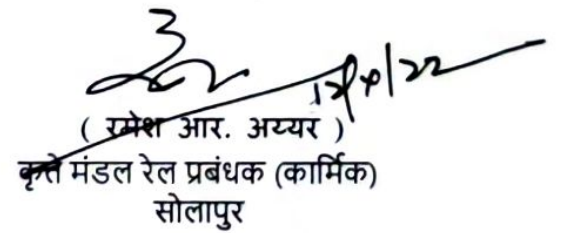 ( रमेश आर. अय्यर )
कृते मंडल रेल प्रबंधक (कार्मिक)
सोलापुर